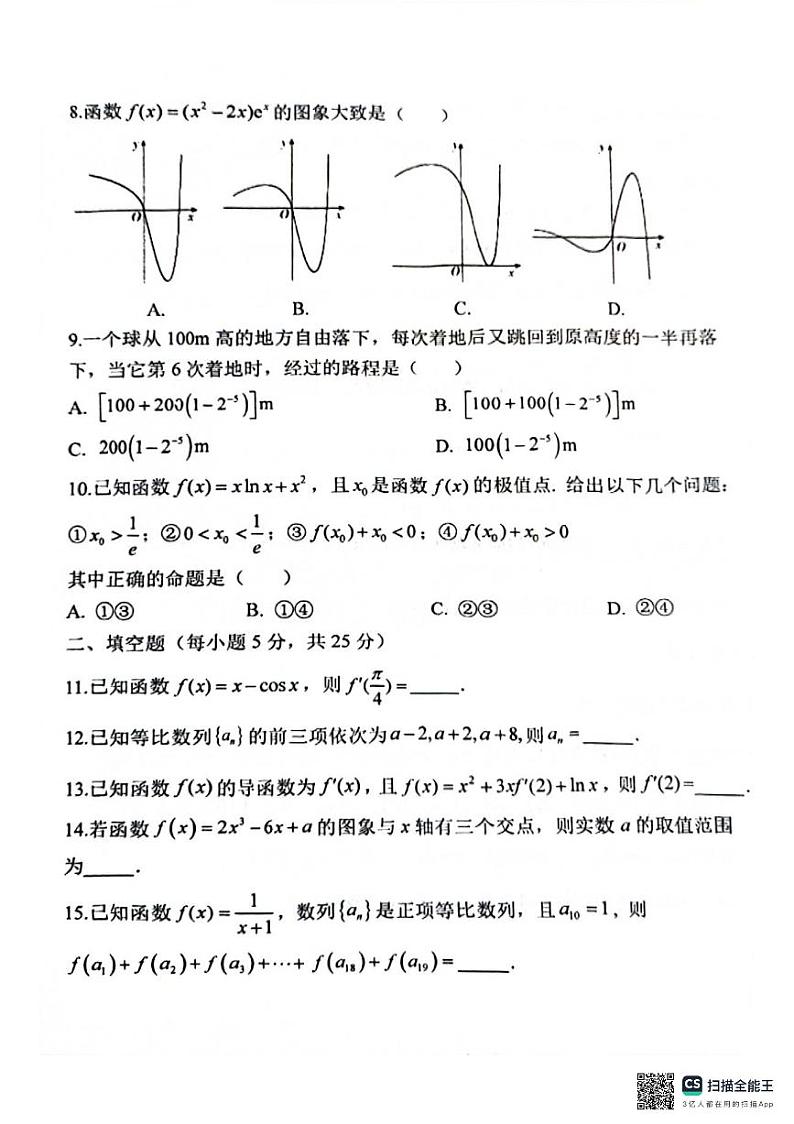 8.函数 f(x)=(x²-2x)eˣ 的图象大致是（　　）
y y y y
O x O x O x O x
A. B. C. D.
9.一个球从 100m 高的地方自由落下，每次着地后又跳回到原高度的一半再落
下，当它第 6 次着地时，经过的路程是（　　）
A. [100+200(1-2⁻⁵)]m B. [100+100(1-2⁻⁵)]m
C. 200(1-2⁻⁵)m D. 100(1-2⁻⁵)m
10.已知函数 f(x)=xlnx+x²，且x₀是函数 f(x)的极值点. 给出以下几个问题：
①x₀>1/e；②0<x₀<1/e；③f(x₀)+x₀<0；④f(x₀)+x₀>0
其中正确的命题是（　　）
A. ①③ B. ①④ C. ②③ D. ②④
二、填空题（每小题 5 分，共 25 分）
11.已知函数 f(x)=x-cosx，则 f′(π/4)=_____.
12.已知等比数列{aₙ}的前三项依次为a-2,a+2,a+8,则aₙ=_____.
13.已知函数 f(x)的导函数为 f′(x)，且 f(x)=x²+3xf′(2)+lnx，则 f′(2)=_____.
14.若函数 f(x)=2x³-6x+a 的图象与 x 轴有三个交点，则实数 a 的取值范围
为_____.
15.已知函数 f(x)=1/(x+1)，数列{aₙ}是正项等比数列，且a₁₀=1，则
f(a₁)+f(a₂)+f(a₃)+⋯+f(a₁₈)+f(a₁₉)=_____.
CS 扫描全能王
3亿人都在用的扫描App